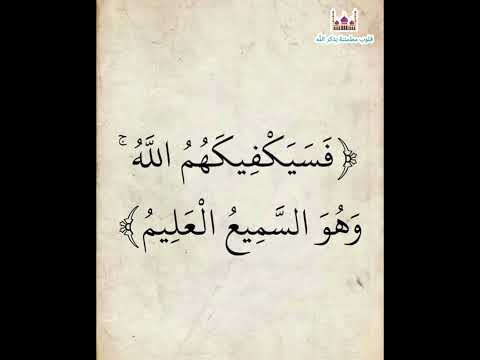 قلوب مطمئنة بذكر الله
﴿فَسَيَكْفِيكَهُمُ اللَّهُ ۚ
وَهُوَ السَّمِيعُ الْعَلِيمُ﴾